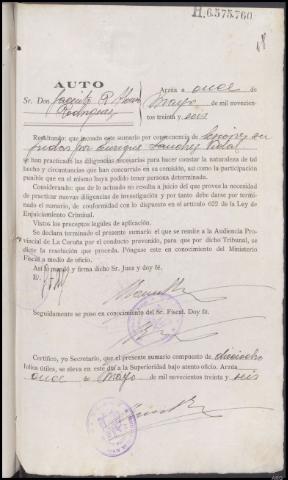 H.6.575.760
AUTO
Sr. Don Jacinto R.
Rodríguez
Arzúa a once de
Mayo de mil novecien-
tos treinta y seis
Resultando: que incoado este sumario por consecuencia de lesiones su-
fridas por Enrique Sánchez Vidal
se han practicado las diligencias necesarias para hacer constar la naturaleza de tal
hecho y circunstancias que han concurrido en su comisión, así como la participación
posible que en el mismo haya podido tener persona determinada.
Considerando: que de lo actuado se resulta a juicio del que provee la necesidad
de practicar nuevas diligencias de investigación y por tanto debe darse por termi-
nado el sumario, de conformidad con lo dispuesto en el artículo 622 de la Ley de
Enjuiciamiento Criminal.
Vistos los preceptos legales de aplicación.
Se declara terminado el presente sumario el que se remite a la Audiencia Pro-
vincial de La Coruña por el conducto prevenido, para que por dicho Tribunal, se
dicte la resolución que proceda. Póngase este en conocimiento del Ministerio
Fiscal a medio de oficio.
Así lo mandó y firma dicho Sr. Juez y doy fé.
E/.
Seguidamente se puso en conocimiento del Sr. Fiscal. Doy fé.
Certifico, yo Secretario, que el presente sumario compuesto de dieciocho
folios útiles, se eleva en este día a la Superioridad bajo atento oficio. Arzúa
once de Mayo de mil novecientos treinta y seis